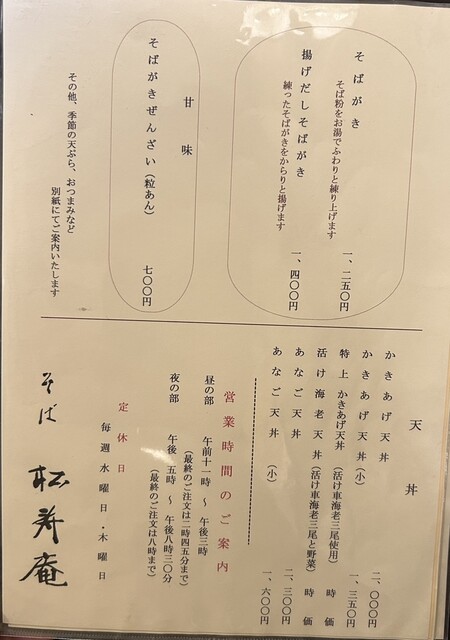 そばがき
そば粉をお湯でふわりと練り上げます
一、二五〇円
揚げだしそばがき
練ったそばがきをからりと揚げます
一、四〇〇円
甘味
そばがきぜんざい（粒あん）
七〇〇円
その他、季節の天ぷら、おつまみなど
別紙にてご案内いたします
天丼
かきあげ天丼
二、〇〇〇円
かきあげ天丼（小）
一、三五〇円
特上 かきあげ天丼（活け車海老三尾使用）
時価
活け海老天丼（活け車海老三尾と野菜）
時価
あなご天丼
二、三〇〇円
あなご天丼（小）
一、六〇〇円
営業時間のご案内
昼の部 午前十一時 ～ 午後三時
（最終のご注文は二時四五分まで）
夜の部 午後 五時 ～ 午後八時三〇分
（最終のご注文は八時まで）
定休日
毎週水曜日・木曜日
そば 松寿庵